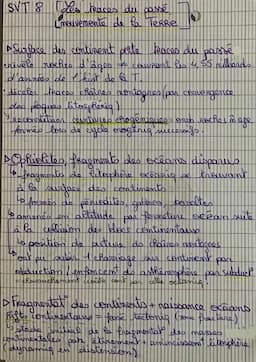 SVT 8 [Les traces du passé
mouvements de la Terre]
▷ Surface des continent porte traces du passé
révèle roches d'âges ≠ couvrant les 4,55 milliards
d'années de l'hist de la T.
déceler traces chaînes montagnes (par convergence
des plaques lithosphériq)
reconstitution ceintures orogéniques: ens roches m âge
formées lors de cycle orogéniq successifs.
▷ Ophiolites, fragments des océans disparus
↳ fragments de lithosphère océaniq se trouvant
à la surface des continents
↳ formés de péridotites, gabbros, basaltes
↳ amenés en altitude par fermeture océan suite
à la collision des blocs continentaux
↳ position de suture de chaînes montagnes
↳ ont pu subir 1 charriage sur continent par
obduction / enfoncem dans asthénosphère par subduct°
▷ Fragmentat° des continents + naissance océans
Rifts continentaux = zone tectoniq (une fracture)
↳ stade initial de la fragmentat° des masses
continentales par étirement + amincissem lithosphère
(dynamiq en distension).